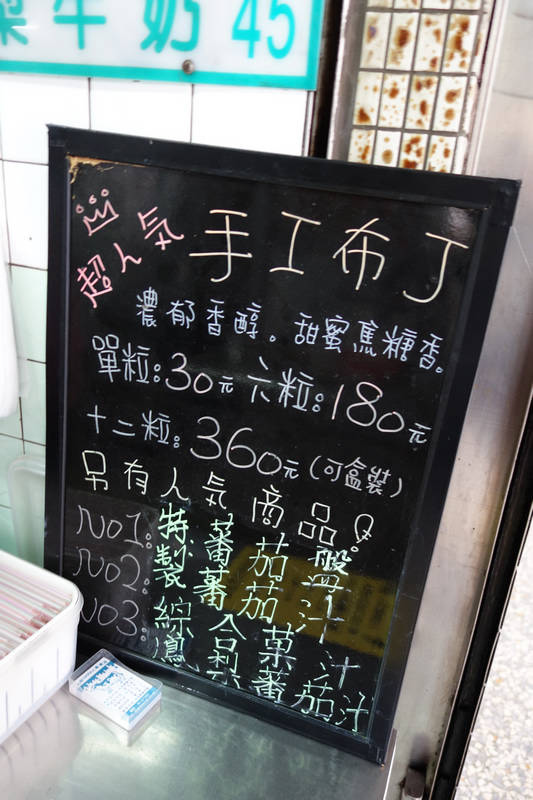 牛奶 45
超人気 手工布丁
濃郁香醇。甜蜜焦糖香。
單粒:30元 六粒:180元
十二粒:360元(可盒裝)
另有人気商品!
NO1:特製蕃茄盤
NO2:蕃茄汁
NO3:綜合菓汁
鳳梨蕃茄汁